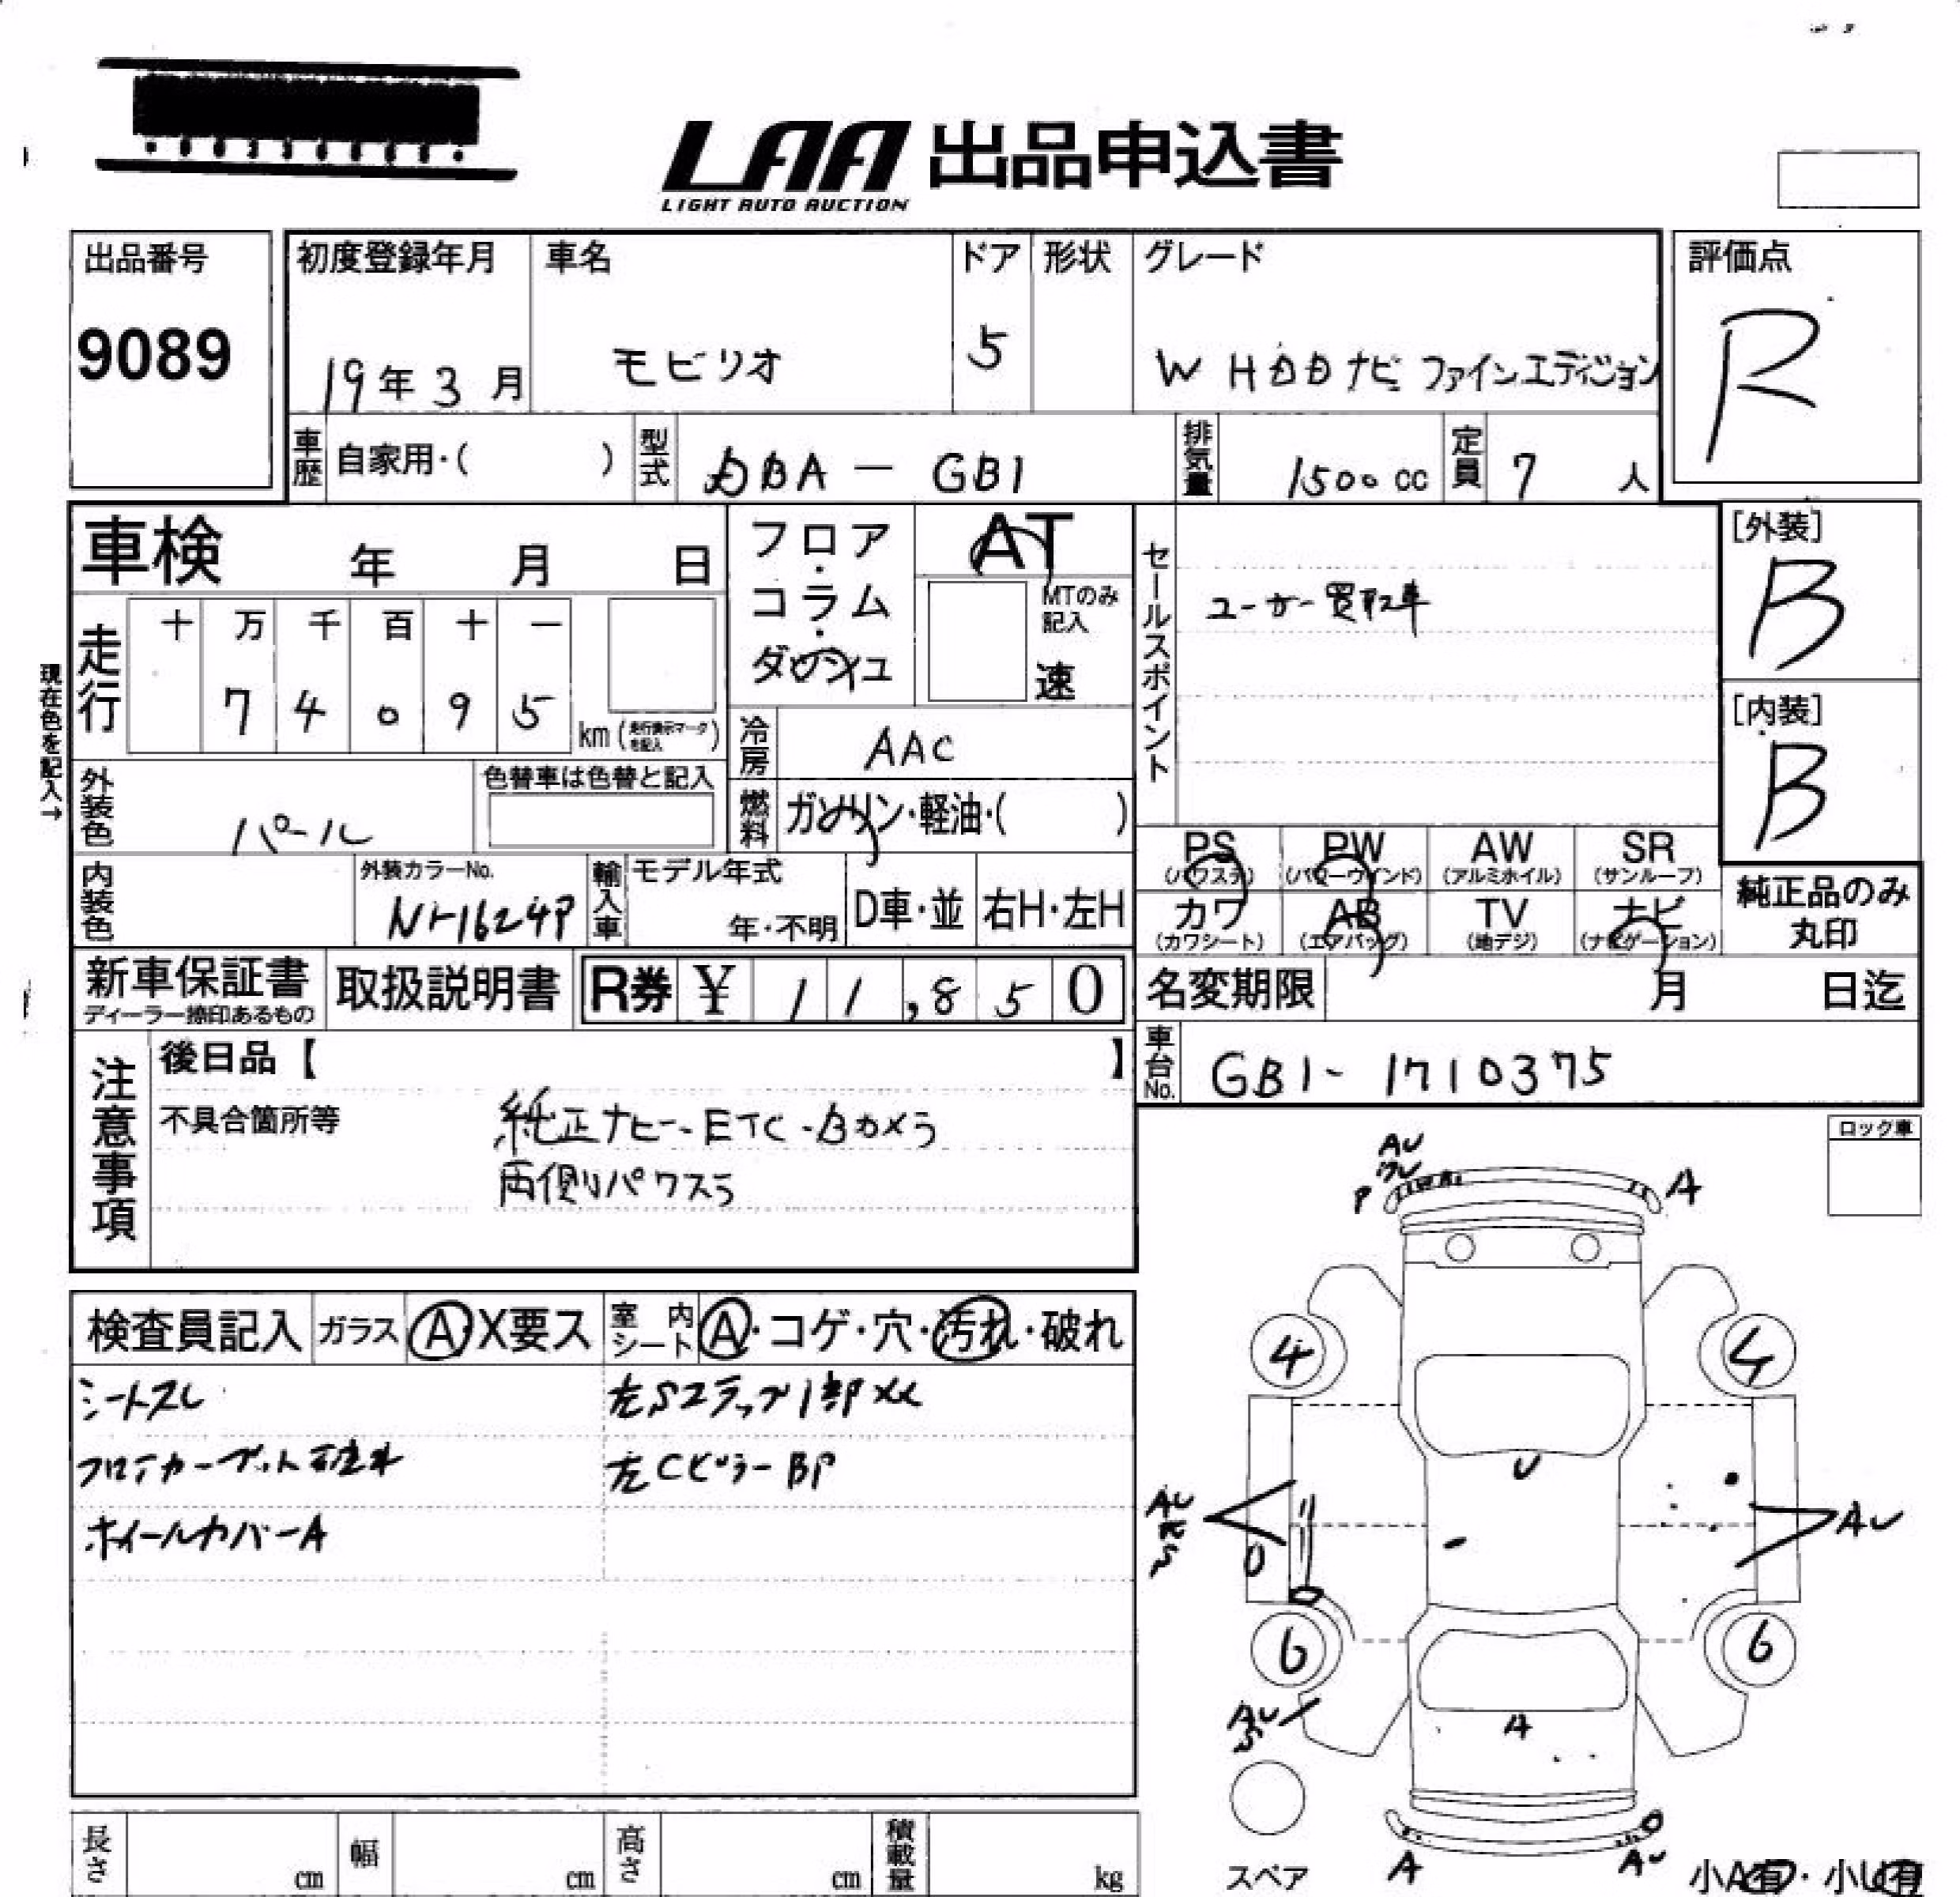 LAA 出品申込書
LIGHT AUTO AUCTION
出品番号
9089
初度登録年月
19年3月
車名
モビリオ
ドア
5
形状
グレード
W HDDナビ ファインエディション
評価点
R
車歴
自家用・( )
型式
DBA - GB1
排気量
1500 cc
定員
7 人
車検 年 月 日
フロア・コラム・ダッシュ
AT
MTのみ記入
速
セールスポイント
ユーザー買取車
[外装]
B
[内装]
B
現在色を記入→
走行
十 万 千 百 十 一
7 4 0 9 5
km (走行表示マークを記入)
冷房
AAC
燃料
ガソリン・軽油・( )
外装色
パール
色替車は色替と記入
内装色
外装カラーNo.
NH624P
輸入車
モデル年式
年・不明
D車・並
右H・左H
PS
(パワステ)
PW
(パワーウインド)
AW
(アルミホイル)
SR
(サンルーフ)
カワ
(カワシート)
AB
(エアバッグ)
TV
(地デジ)
ナビ
(ナビゲーション)
純正品のみ
丸印
新車保証書
ディーラー捺印あるもの
取扱説明書
R券 ¥ 11,850
名変期限 月 日迄
車台No.
GB1-1710375
注意事項
後日品【 】
不具合箇所等
純正ナビ-・ETC・Bカメラ
両側パワスラ
ロッグ車
検査員記入
ガラス
A・X要ス
室内シート
A・コゲ・穴・汚れ・破れ
シートスレ
左Sステップ1部メメ
左Cピラー BP
ホイールカバーA
AU
P
A
4
4
U
AU
S
U
AU
6
6
AU
S
A
A
AU
スペア
小A有・小U有
長さ
cm
幅
cm
高さ
cm
積載量
kg